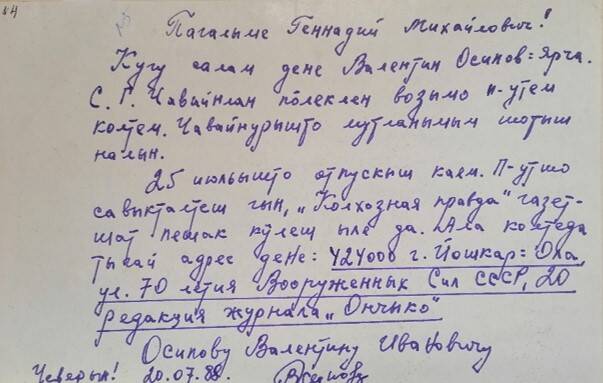 №4
Пагалыме Геннадий Михайлович!
Кугу салам дене Валентин Осипов=Ярча.
С. Г. Чавайнлан пӧлеклен возымо п-утем
колтем. Чавайнурышто лутланымым шотыш
налын.
25 июльышто отпускыш каем. П-утшо
савыкталтеш гын, „Колхозная правда" газет-
шат пешак кӱлеш ыле да. Ала колтеда
тыгай адрес дене: 424000 г. Йошкар=Ола,
ул. 70 летия Вооруженных Сил СССР, 20
редакция журнала „Ончыко"
Осипову Валентину Ивановичу
Чеверын! 20.07.88.